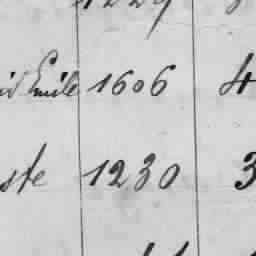 1229
Emile 1606 4
ste 1230 3